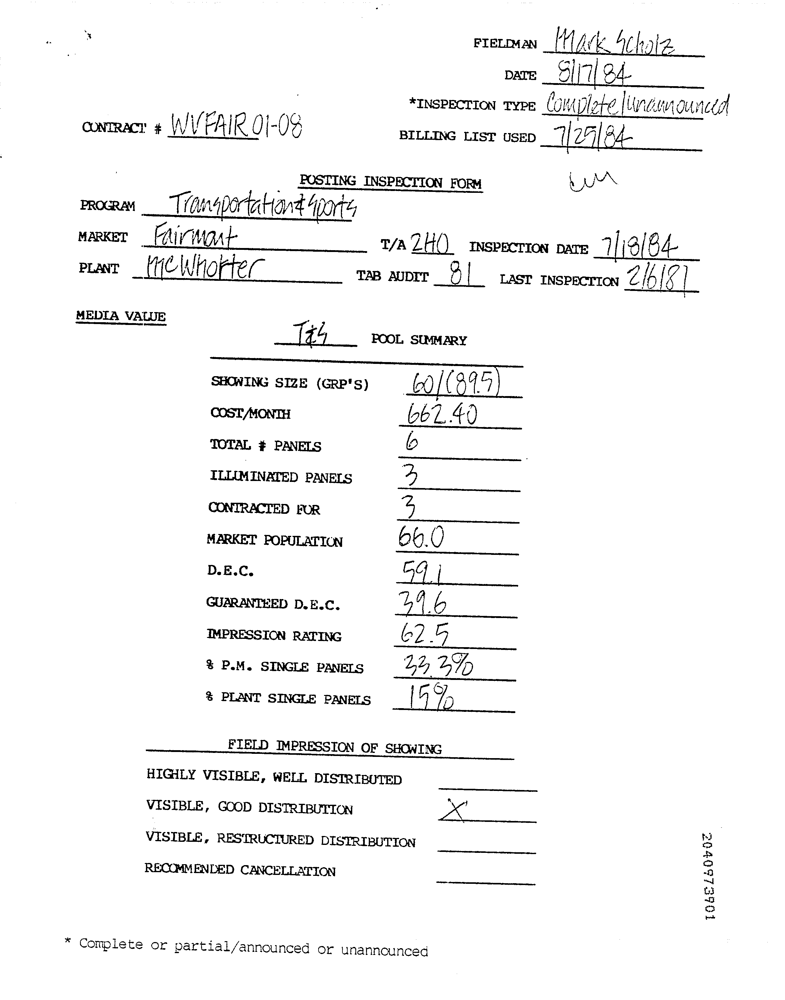 FIELDMAN Mark Scholz
DATE 8/17/84
*INSPECTION TYPE Complete/unannounced
CONTRACT # WVFAIR 01-08
BILLING LIST USED 7/25/84
POSTING INSPECTION FORM
PROGRAM Transportation & Sports
MARKET Fairmont T/A 2HO INSPECTION DATE 7/18/84
PLANT McWhorter TAB AUDIT 81 LAST INSPECTION 2/6/81
MEDIA VALUE
T&S POOL SUMMARY
SHOWING SIZE (GRP'S) 60/(89.5)
COST/MONTH 662.40
TOTAL # PANELS 6
ILLUMINATED PANELS 3
CONTRACTED FOR 3
MARKET POPULATION 66.0
D.E.C. 59.1
GUARANTEED D.E.C. 39.6
IMPRESSION RATING 62.5
% P.M. SINGLE PANELS 33.3%
% PLANT SINGLE PANELS 15%
FIELD IMPRESSION OF SHOWING
HIGHLY VISIBLE, WELL DISTRIBUTED
VISIBLE, GOOD DISTRIBUTION X
VISIBLE, RESTRUCTURED DISTRIBUTION
RECOMMENDED CANCELLATION
2040973901
* Complete or partial/announced or unannounced